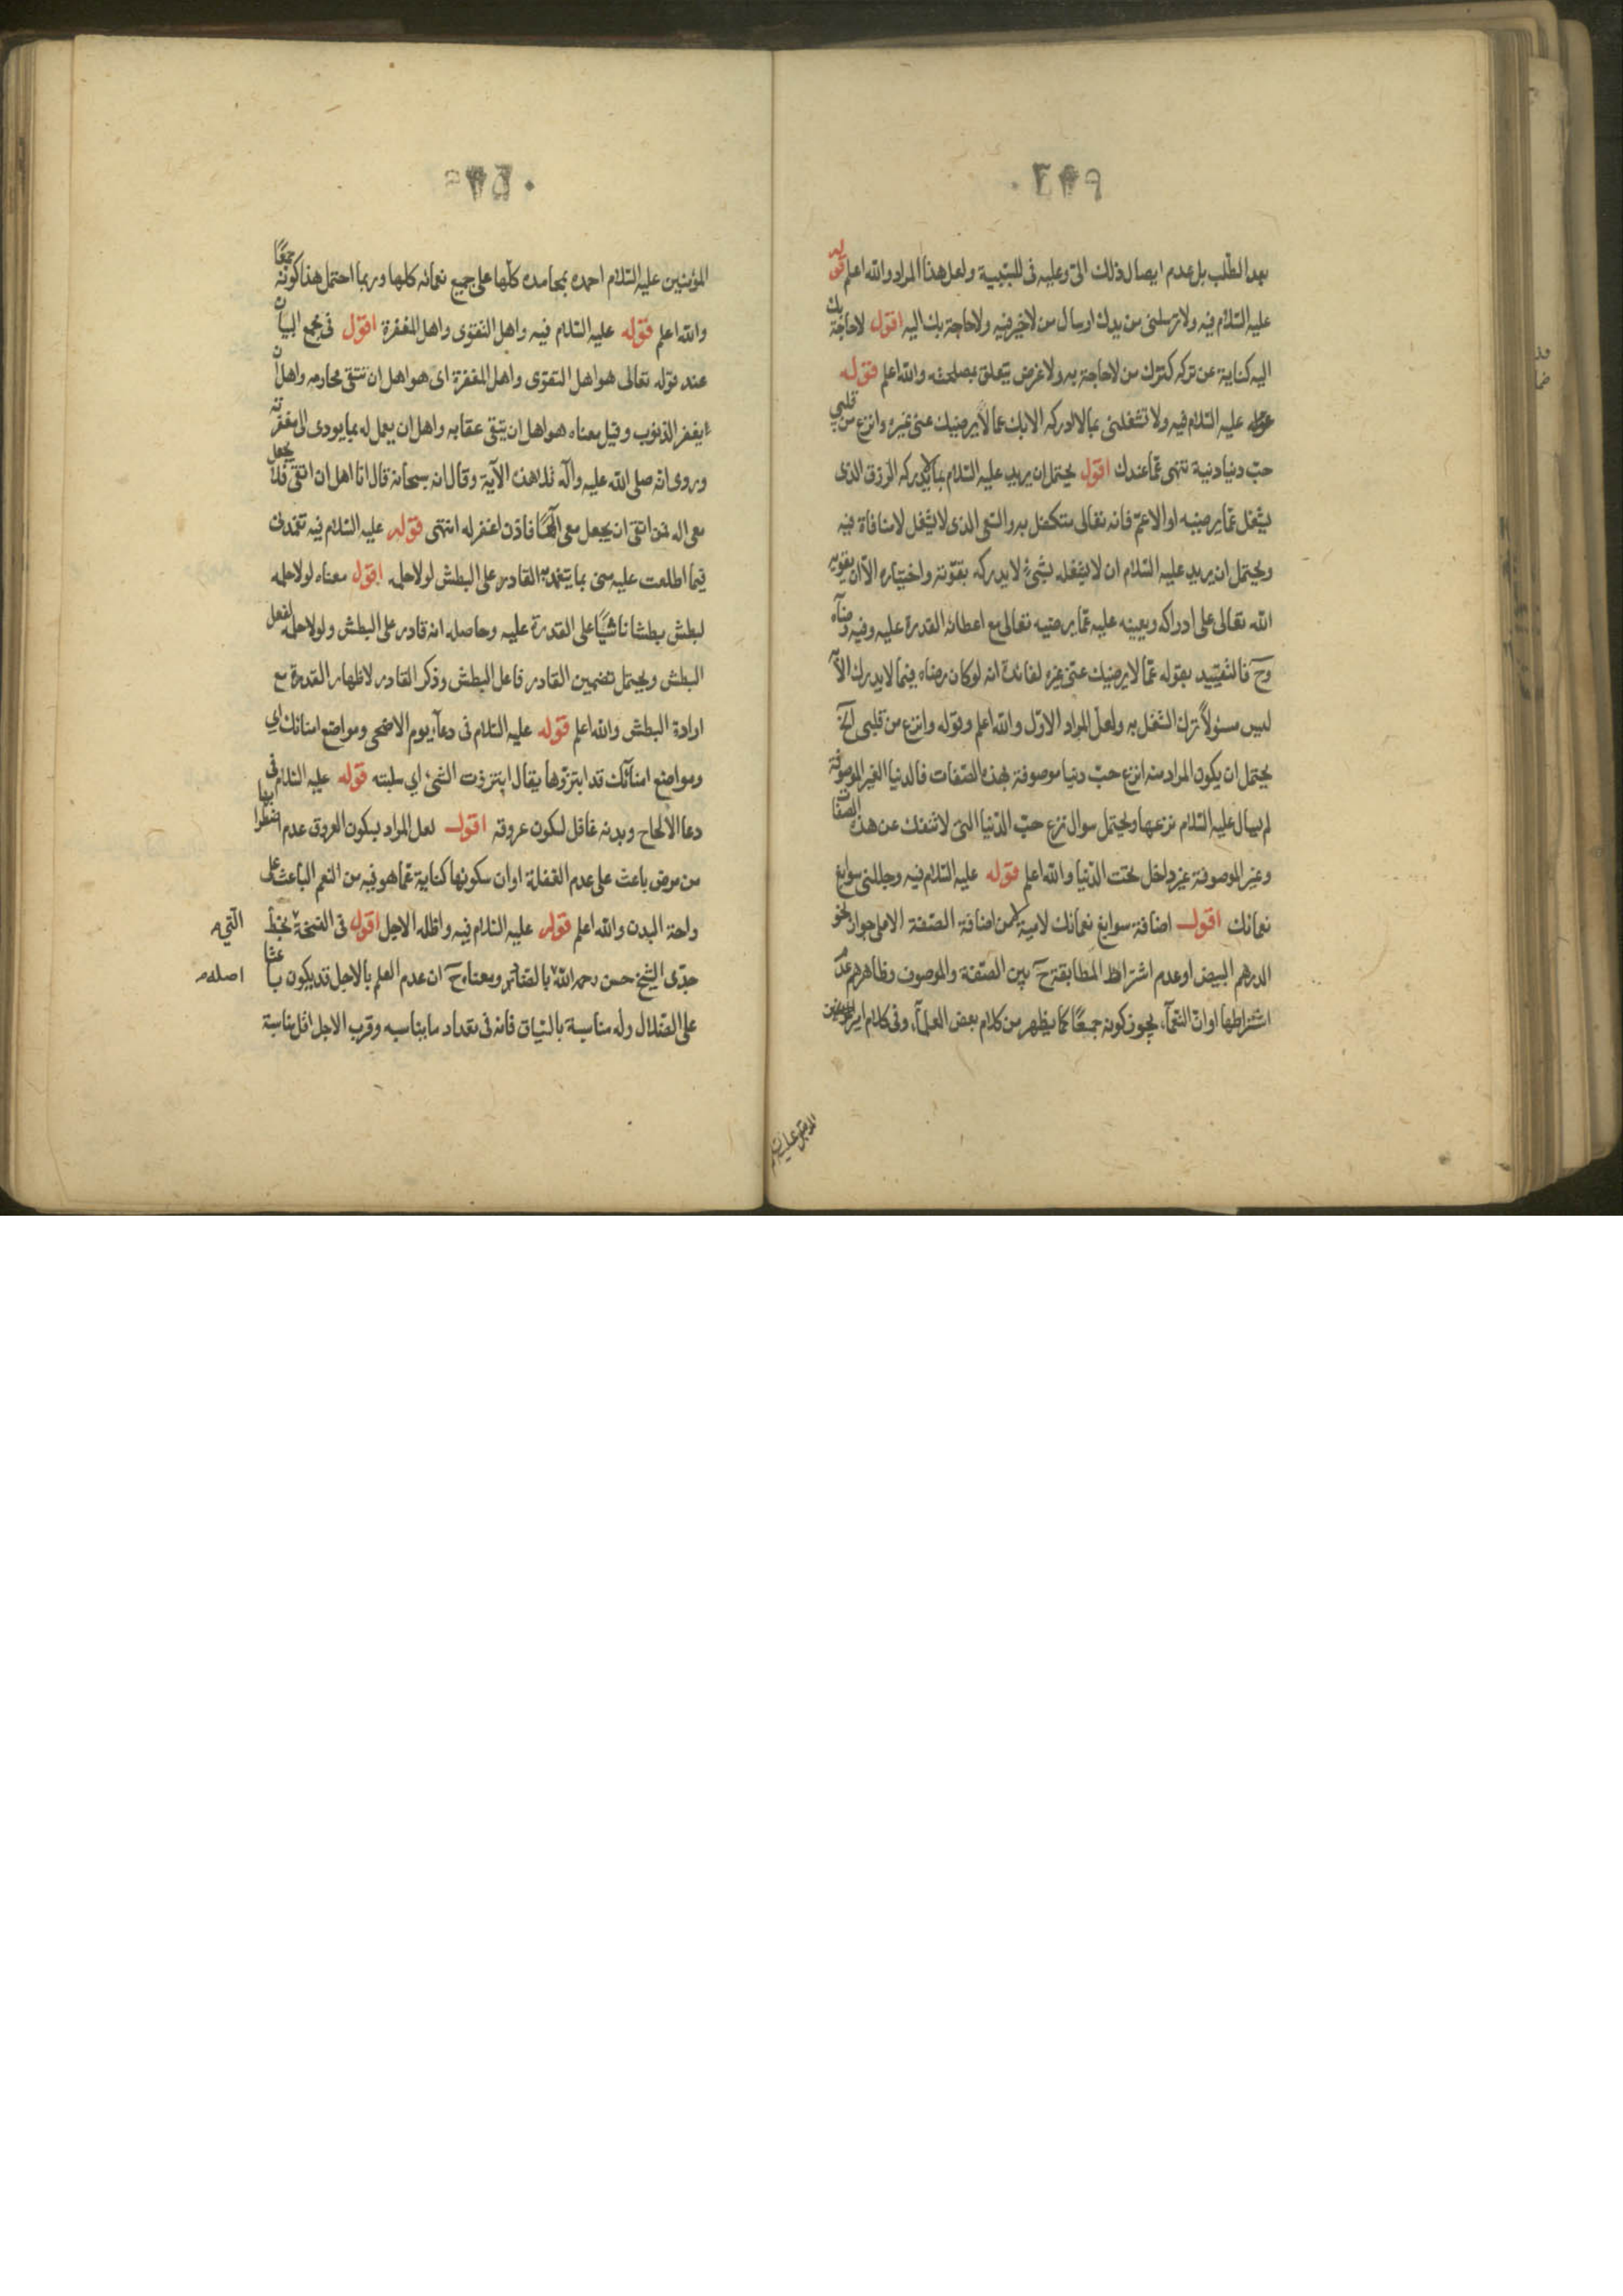 ٤٤٩
بهذا الطلب بل عدم ايصال ذلك الىّ وعليه فى للسببية ولعل هذا المراد والله اعلم قوله
عليه السّلام فيه ولا ترسلنى من يدك ارسال من لا خير فيه ولا حاجة بك اليه اقول لا حاجة بك
اليه كناية عن تركه كترك من لا حاجة به ولا غرض يتعلق بمصلحته والله اعلم قوله
عليه السّلام فيه ولا تشغلنى بما لا ادركه الا بك عما لا يرضيك عنى غيره وانزع من قلبي
حبّ دنيا دنية تنهى عمّا عندك اقول يحتمل ان يريد عليه السّلام بما لا يدركه الرزق الذى
يشغل عمّا يرضيه او الاعم فانه تعالى متكفل به والسّعى الذى لا يشغل لا منافاة فيه
ويحتمل ان يريد عليه السّلام ان لا يشغله بشئ لا يدركه بقوّته واختياره الا ان يقويه
الله تعالى على ادراكه ويعينه عليه عمّا يرضيه تعالى مع اعطائه القدرة عليه وفيه رضاه
وحَ فالتقييد بقوله عمّا لا يرضيك عنى غيره لفائدة انه لو كان رضاه فيما لا يدرك الّا
ليس مسئولاً ترك الشغل به ولعل المراد الاوّل والله اعلم وقوله وانزع من قلبى الخ
يحتمل ان يكون المراد منه انزع حبّ دنيا موصوفة بهذه الصّفات فالدنيا الغير الموصوفة
لم يسال عليه السّلام نزعها ويحتمل سوال نزع حبّ الدّنيا التى لا تنفك عن هذه الصفات
وغير الموصوفة غير داخل تحت الدّنيا والله اعلم قوله عليه السّلام فيه وجللنى سوابغ
نعمائك اقول اضافة سوابغ نعمائك لامية من اضافة الصّفة الا على جواز نحو
الدرهم البيض او عدم اشتراط المطابقة حَ بين الصّفة والموصوف وظاهرهم عدم
اشتراطها او انّ النعمآء يجوز كونه جمعًا كما يظهر من كلام بعض العلمآء وفى كلام امير المؤمنين
المؤمنين عليه السّلام احمده بمحامده كلّها على جميع نعمائه كلها وربما احتمل هذا كونه جمعًا
والله اعلم قوله عليه السّلام فيه واهل التقوى واهل المغفرة اقول فى مجمع البيان
عند قوله تعالى هو اهل التقوى واهل المغفرة اى هو اهل ان تتقى محارمه واهل ان
يغفر الذنوب وقيل معناه هو اهل ان يتقى عقابه واهل ان يعمل له بما يودى الى مغفرته
وروى انه صلى الله عليه وآله تلا هذه الآية وقال انه سبحانه قال انا اهل ان اتقى فلا يجعل
معى اله فمن اتقى ان يجعل معى الٓهًا فاذن اغفر له انتهى قوله عليه السّلام فيه تغمدنى
فيما اطلعت عليه منى بما يتغمد به القادر على البطش لولا حلمه اقول معناه لولا حلمه
لبطش بطشا ناشيًا على القدرة عليه وحاصله انه قادر على البطش ولولا حلمه لفعل
البطش ويحتمل تضمين القادر فاعل البطش وذكر القادر لاظهار القدرة مع
ارادة البطش والله اعلم قوله عليه السّلام فى دعآء يوم الاضحى ومواضع امنائك اي
ومواضع امنآئك قد ابتزوها يقال ابتززت الشئ اي سلبته قوله عليه السّلام فى
دعا الالحاح وبدنه غافل لسكون عروقه اقول لعل المراد بسكون العروق عدم اضطرابها
من مرض باعث على عدم الغفلة او ان سكونها كناية عمّا هو فيه من النعم الباعث على
راحة البدن والله اعلم قوله عليه السّلام فيه واظله الاجل اقول فى النسخة بخطّ
التي
جدّى الشيخ حسن رحمه الله بالضاد ومعناه حَ ان عدم العلم بالاجل قد يكون باعثا
اصله
على الضلال وله مناسبة بالسّياق فانه فى تعداد ما يناسبه وقرب الاجل اقل مناسبة